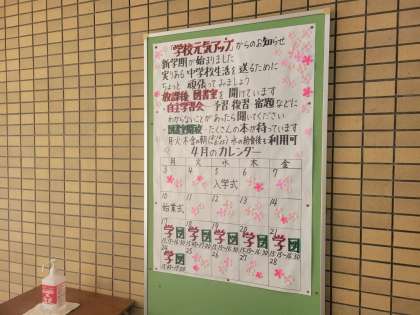 「学校元気アップ」からのお知らせ
新学期が始まりました
実りある中学校生活を送るために
ちょっと 頑張ってみましょう
放課後 図書室を 開けています
自主学習会 予習 復習 宿題などに
わからないことがあったら聞いてください
図書室開放 たくさんの本が待っています
月・火・木・金の朝 水の給食後も利用可
4月のカレンダー
月 火 水 木 金
3 4 5 6 7
入学式
10 11 12 13 14
始業式
17 18 19 20 21
学 図 学 図 学 図 学 図 学 図
24 25 26 27 28
学 図